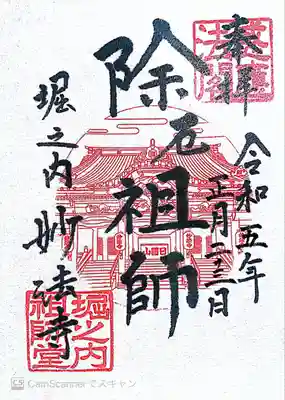 奉拝
令和五年
正月二十二日
除厄
祖師
堀之内 妙法寺
堀之内
祖師堂
CS CamScanner でスキャン